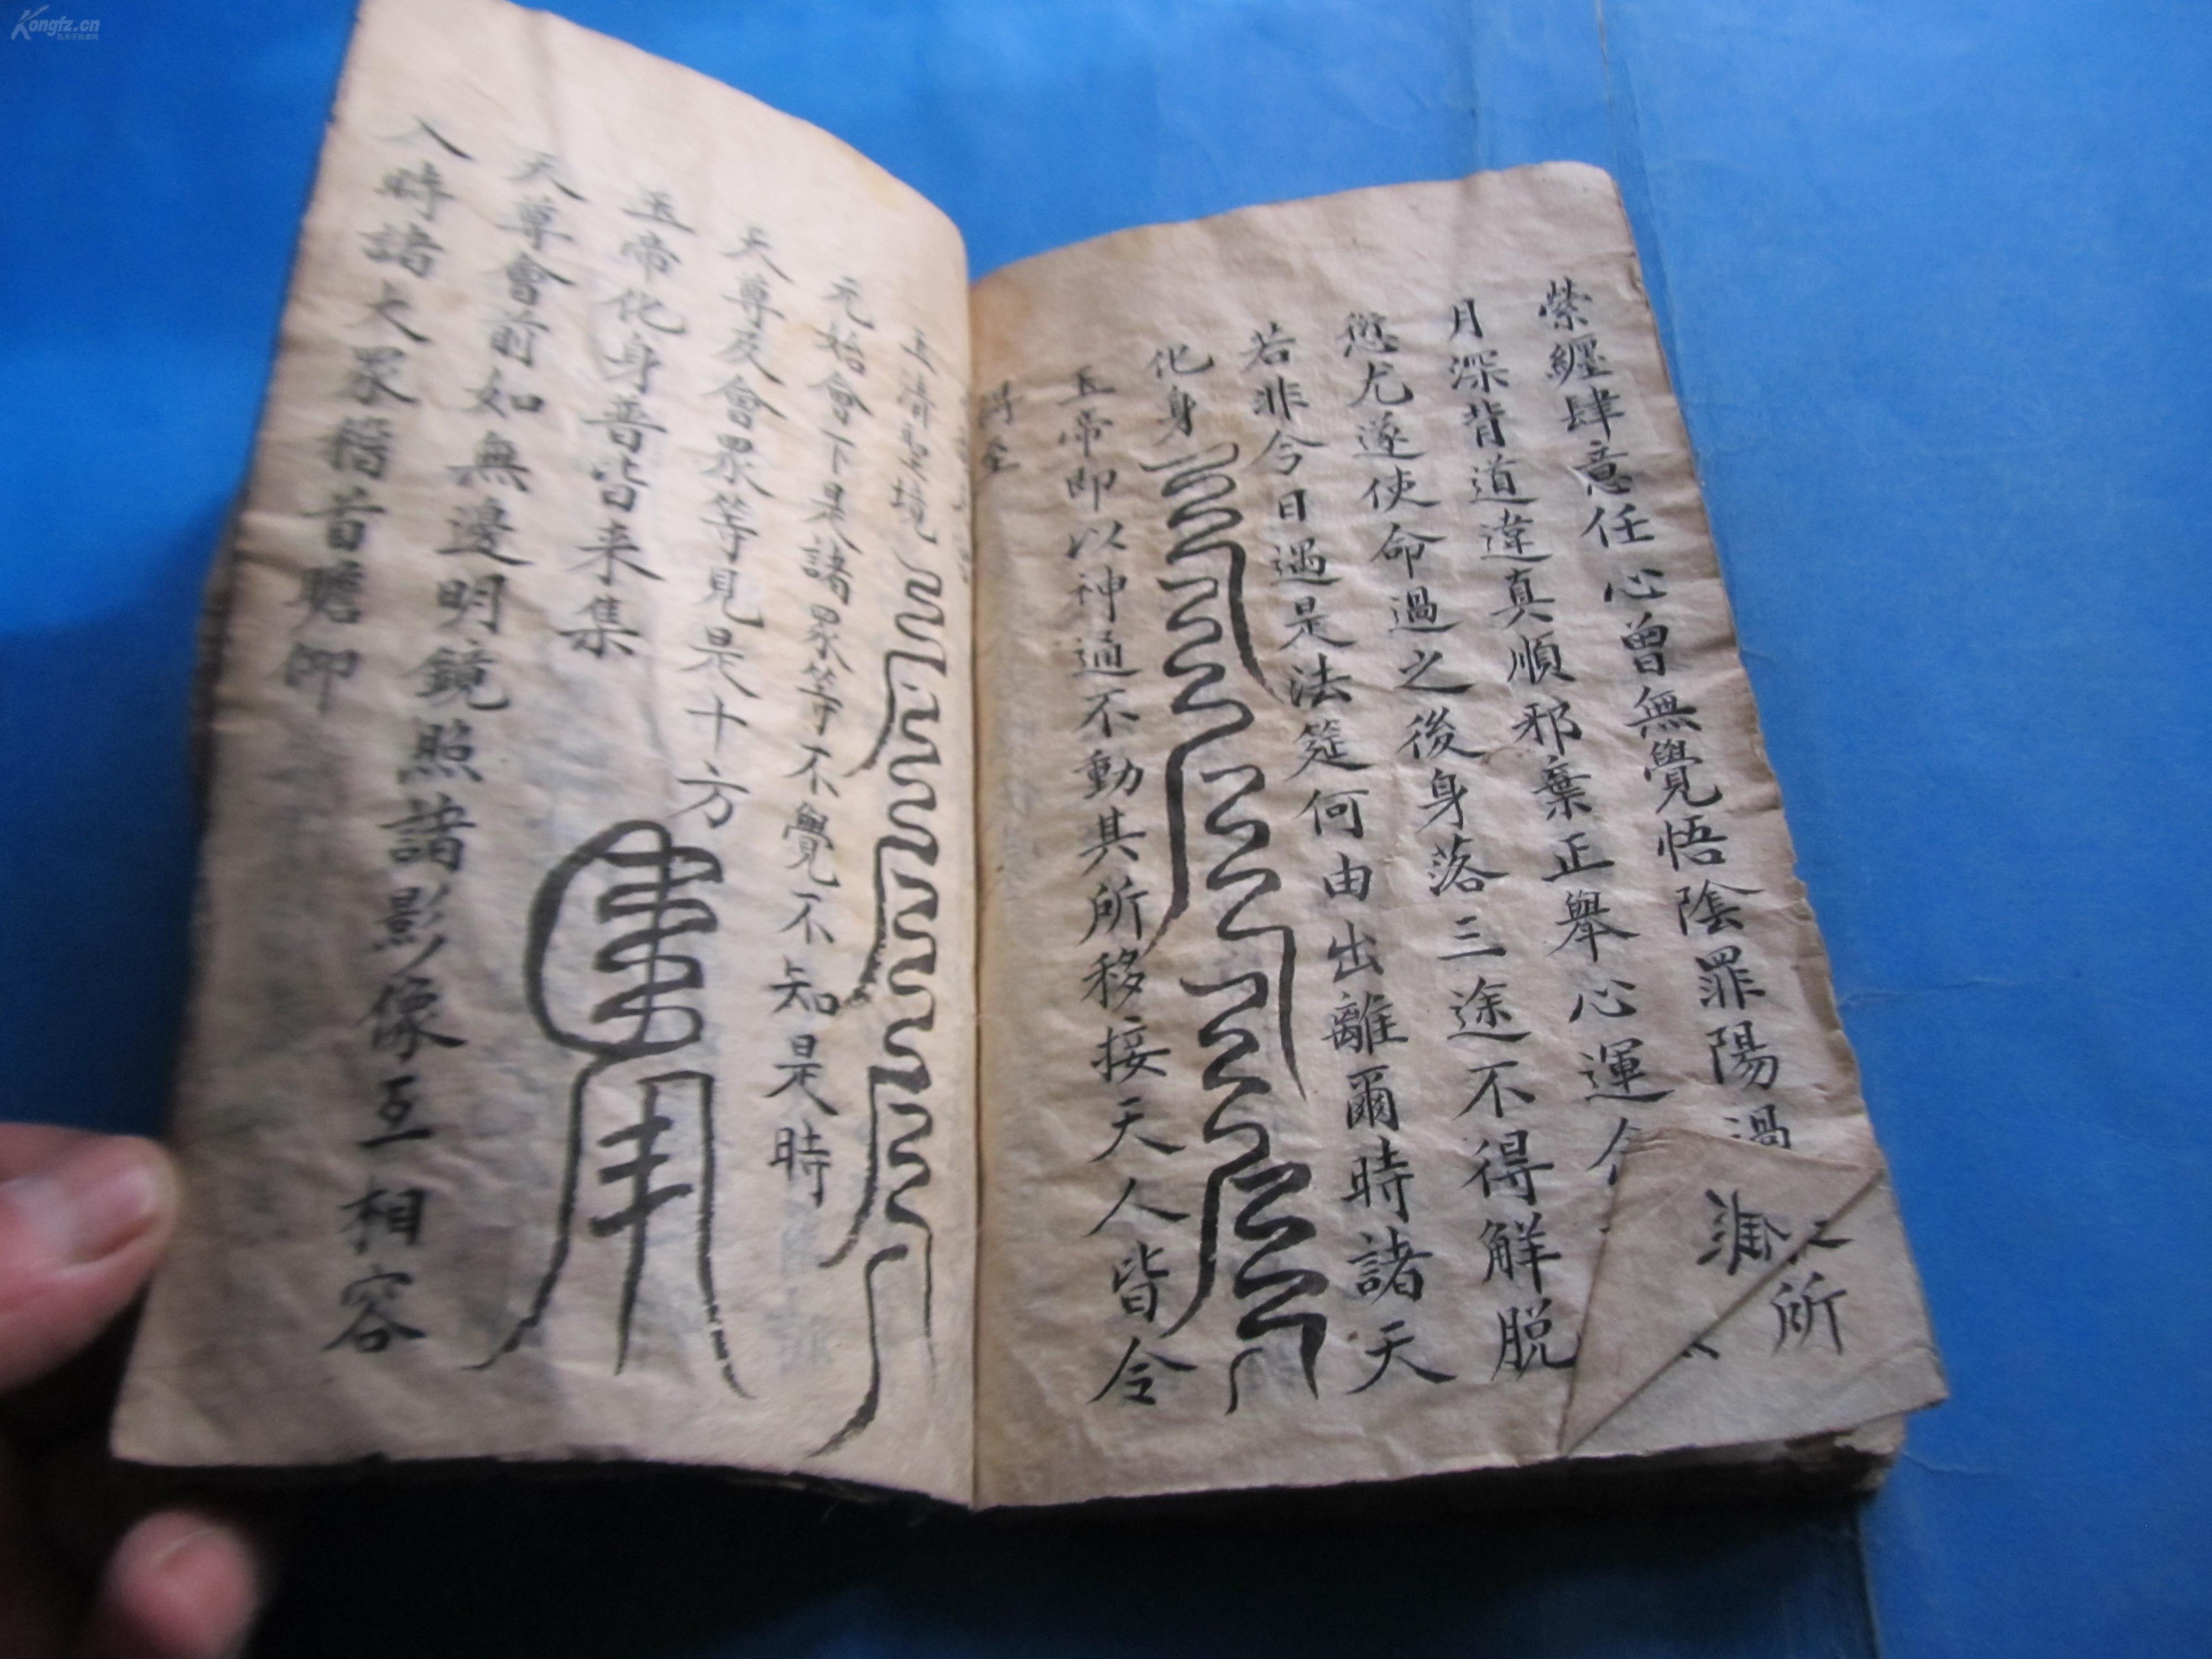 Kongfz.cn
縈纏肆意任心曾無覺悟陰罪陽過
所
月深背道違真順邪棄正舉心運
愆尤遂使命過之後身落三途不得解脱
若非今日遇是法筵何由出離爾時諸天
化身
玉帝即以神通不動其所移接天人皆令
得至
玉清聖境
元始會下是諸眾等不覺不知是時
天尊及會眾等見是十方
玉帝化身普皆来集
天尊會前如無邊明鏡照諸影像互相容
入時諸大眾稽首瞻仰